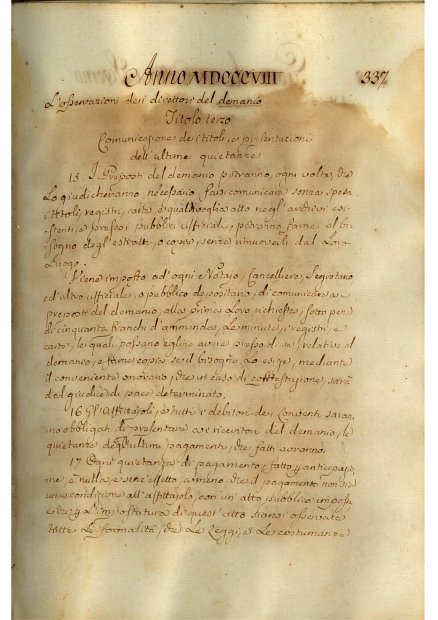 Anno MDCCCVIII 337
L'osservazioni dei direttori del demanio
Titolo terzo
Comunicazione de i titoli, e presentazioni
dell'ultime quietanze
15. I Preposti del demanio potranno, ogni volta, che
Lo giudicheranno necessario, farsi comunicare senza spesa
i titoli, registri, carte, e qualsivoglia atto negl'archivi esi-
stenti, e presso i pubblici ufficiali, potranno farne al bi-
sogno degl'estratti, o copie, senza rimuoverli dal Loro
Luogo.
Viene imposto ad'ogni Notajo, Cancelliere, Segretario
ed'altro ufficiale, o pubblico depositario, di comunicare a
preposti del demanio, alla prima Loro richiesta, sotto pena
di cinquanta franchi d'ammenda, Le minute, i registri, e
carte, le quali possano eglino avere presso di se, relative al
demanio, e farne copia se il bisogno Lo esige, mediante
il conveniente onorario, che in caso di contestazione, sarà
dal giudice di pace determinato.
16 Gl'Affittajoli, e tutti i debitori dei Conventi saran-
no obbligati di presentare ai ricevitori del demanio, le
quietanze degl'ultimi pagamenti, che fatti avranno.
17. Ogni quietanza di pagamento, fatto per anticipazio-
ne, è nulla, e senz'effetto, a meno che il pagamento non sia
una condizione all'affittajolo, con un'atto pubblico imposta,
e che per L'impostatura di quest'atto siano osservate
tutte Le formalità, che Le Leggi, e Le costumanze